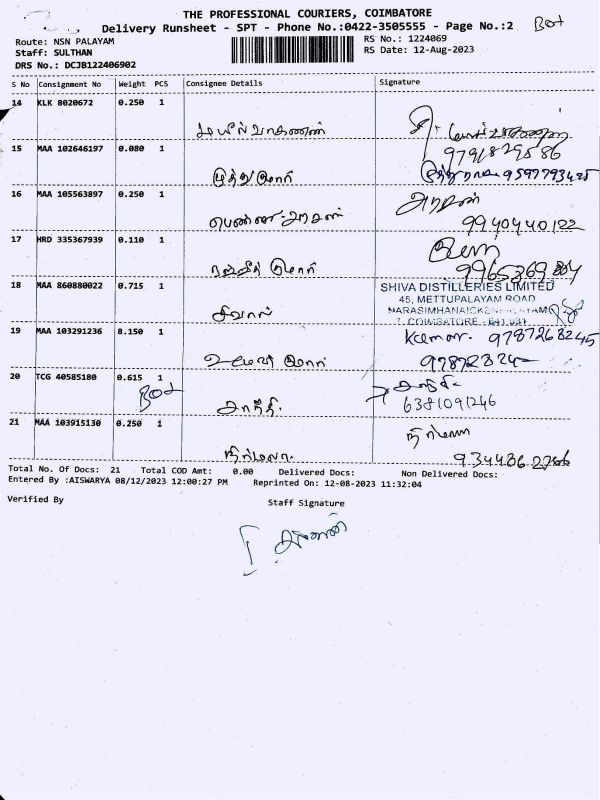 THE PROFESSIONAL COURIERS, COIMBATORE
Delivery Runsheet - SPT - Phone No.:0422-3505555 - Page No.:2
Box
Route: NSN PALAYAM
RS No.: 1224069
Staff: SULTHAN
RS Date: 12-Aug-2023
DRS No.: DCJB122406902
S No Consignment No Weight PCS Consignee Details Signature
14 KLK 8020672 0.250 1
மயில்வாகணன்
9791829586
15 MAA 102646197 0.080 1
முத்துகுமார்
9597793425
16 MAA 105563897 0.250 1
அரசன்
9940440122
17 HRD 335367939 0.110 1
ரஞ்சித் குமார்
9965369804
18 MAA 860880022 0.715 1
SHIVA DISTILLERIES LIMITED
45, METTUPALAYAM ROAD
NARASIMHANAICKENPALAYAM
COIMBATORE - 641 031
சிவாஸ்
19 MAA 103291236 8.150 1
Kumar. 9787268245
குமார்
20 TCG 40585180 0.615 1
Box
சாந்தி.
6381091246
21 MAA 103915130 0.250 1
நிர்மலா
நிர்மலா.
Total No. Of Docs: 21 Total COD Amt: 0.00 Delivered Docs: Non Delivered Docs:
Entered By :AISWARYA 08/12/2023 12:00:27 PM Reprinted On: 12-08-2023 11:32:04
Verified By Staff Signature